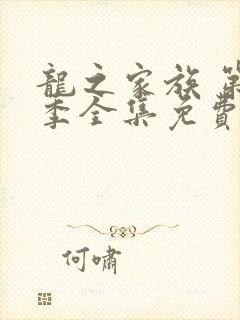 龍之家族 第
季全集免費
何嘯